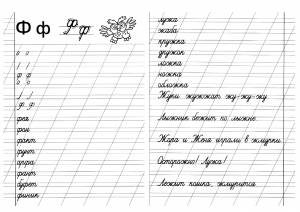 Ф ф Ф ф
ф ф
фея
фон
факт
фунт
арфа
фант
буфет
финик
лужа
жаба
пружка
дружок
ложка
ножка
обложка
Жуки жужжат жу-жу-жу
Лыжник бежит по лыжне
Жора и Женя играли в жмурки
Осторожно! Лужа!
Лежит кошка, жмурится